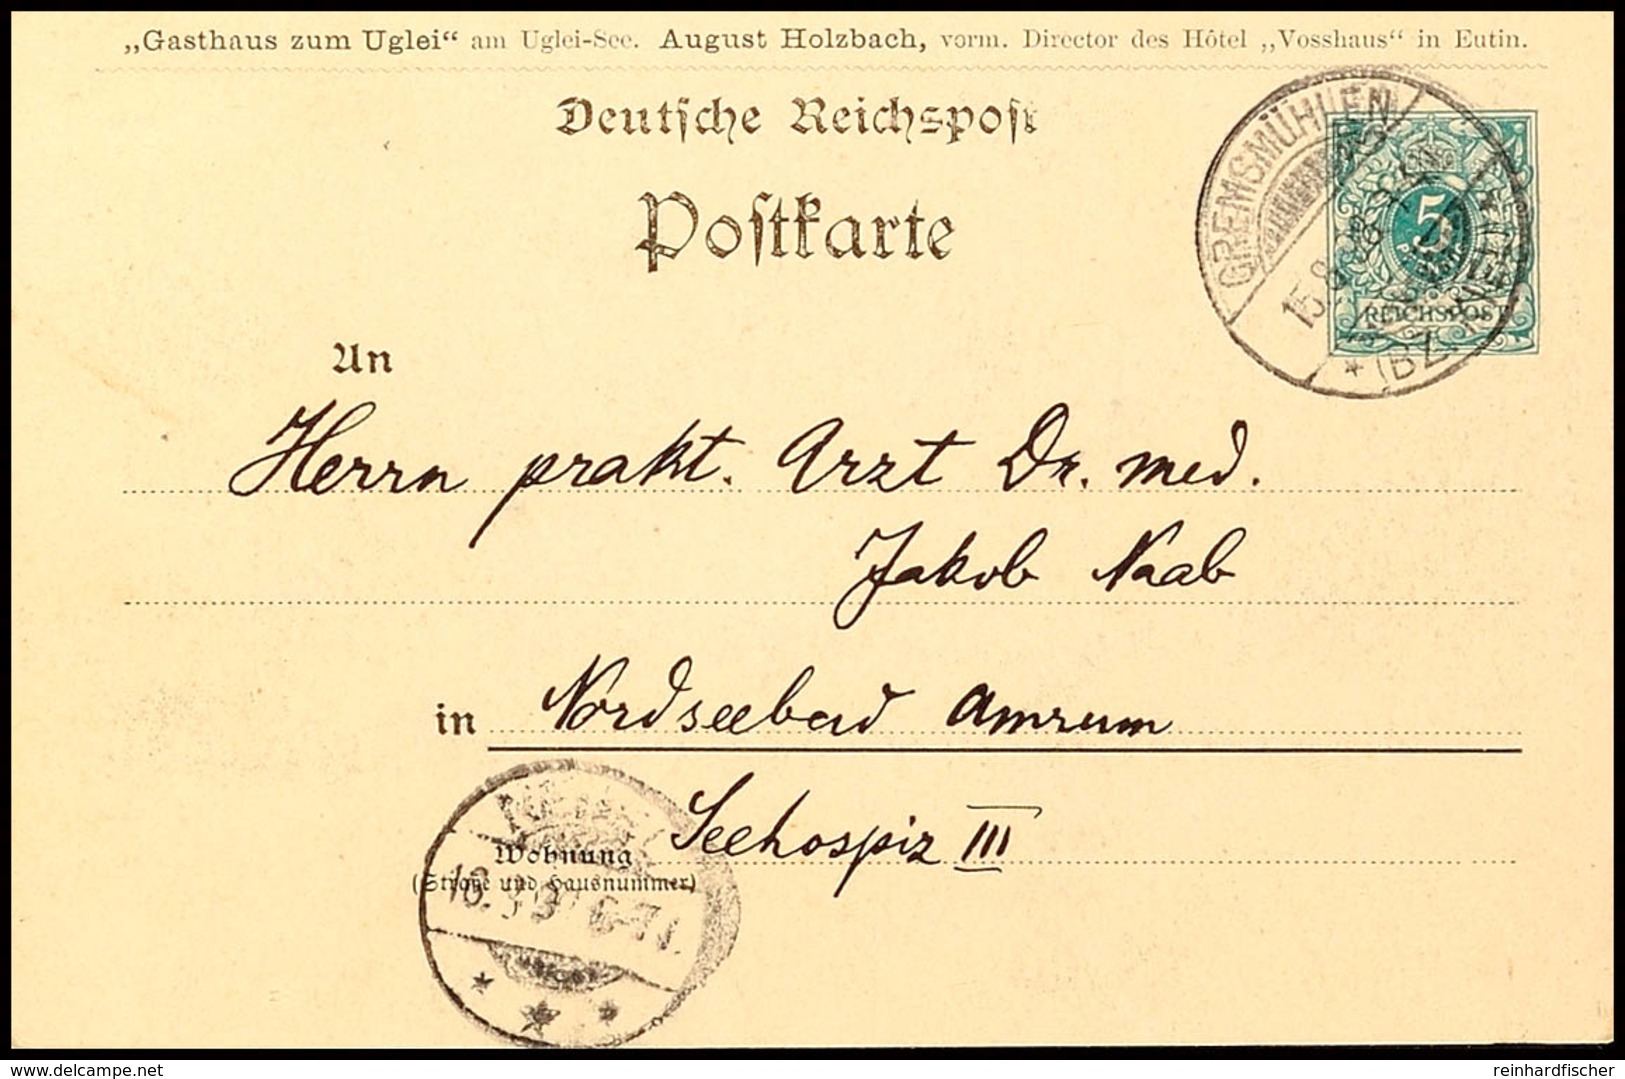 „Gasthaus zum Uglei“ am Uglei-See. August Holzbach, vorm. Director des Hôtel „Vosshaus“ in Eutin.
Deutsche Reichspost
Postkarte
GREMSMÜHLEN
15.8.98
* (BZ. KIEL) *
5
REICHSPOST
An
Herrn prakt. Arzt Dr. med.
Jakob Naab
in Nordseebad Amrum
Seehospiz III
Wohnung
(Straße und Hausnummer)
16. 6-7N.
www.delcampe.net
reinhardfischer